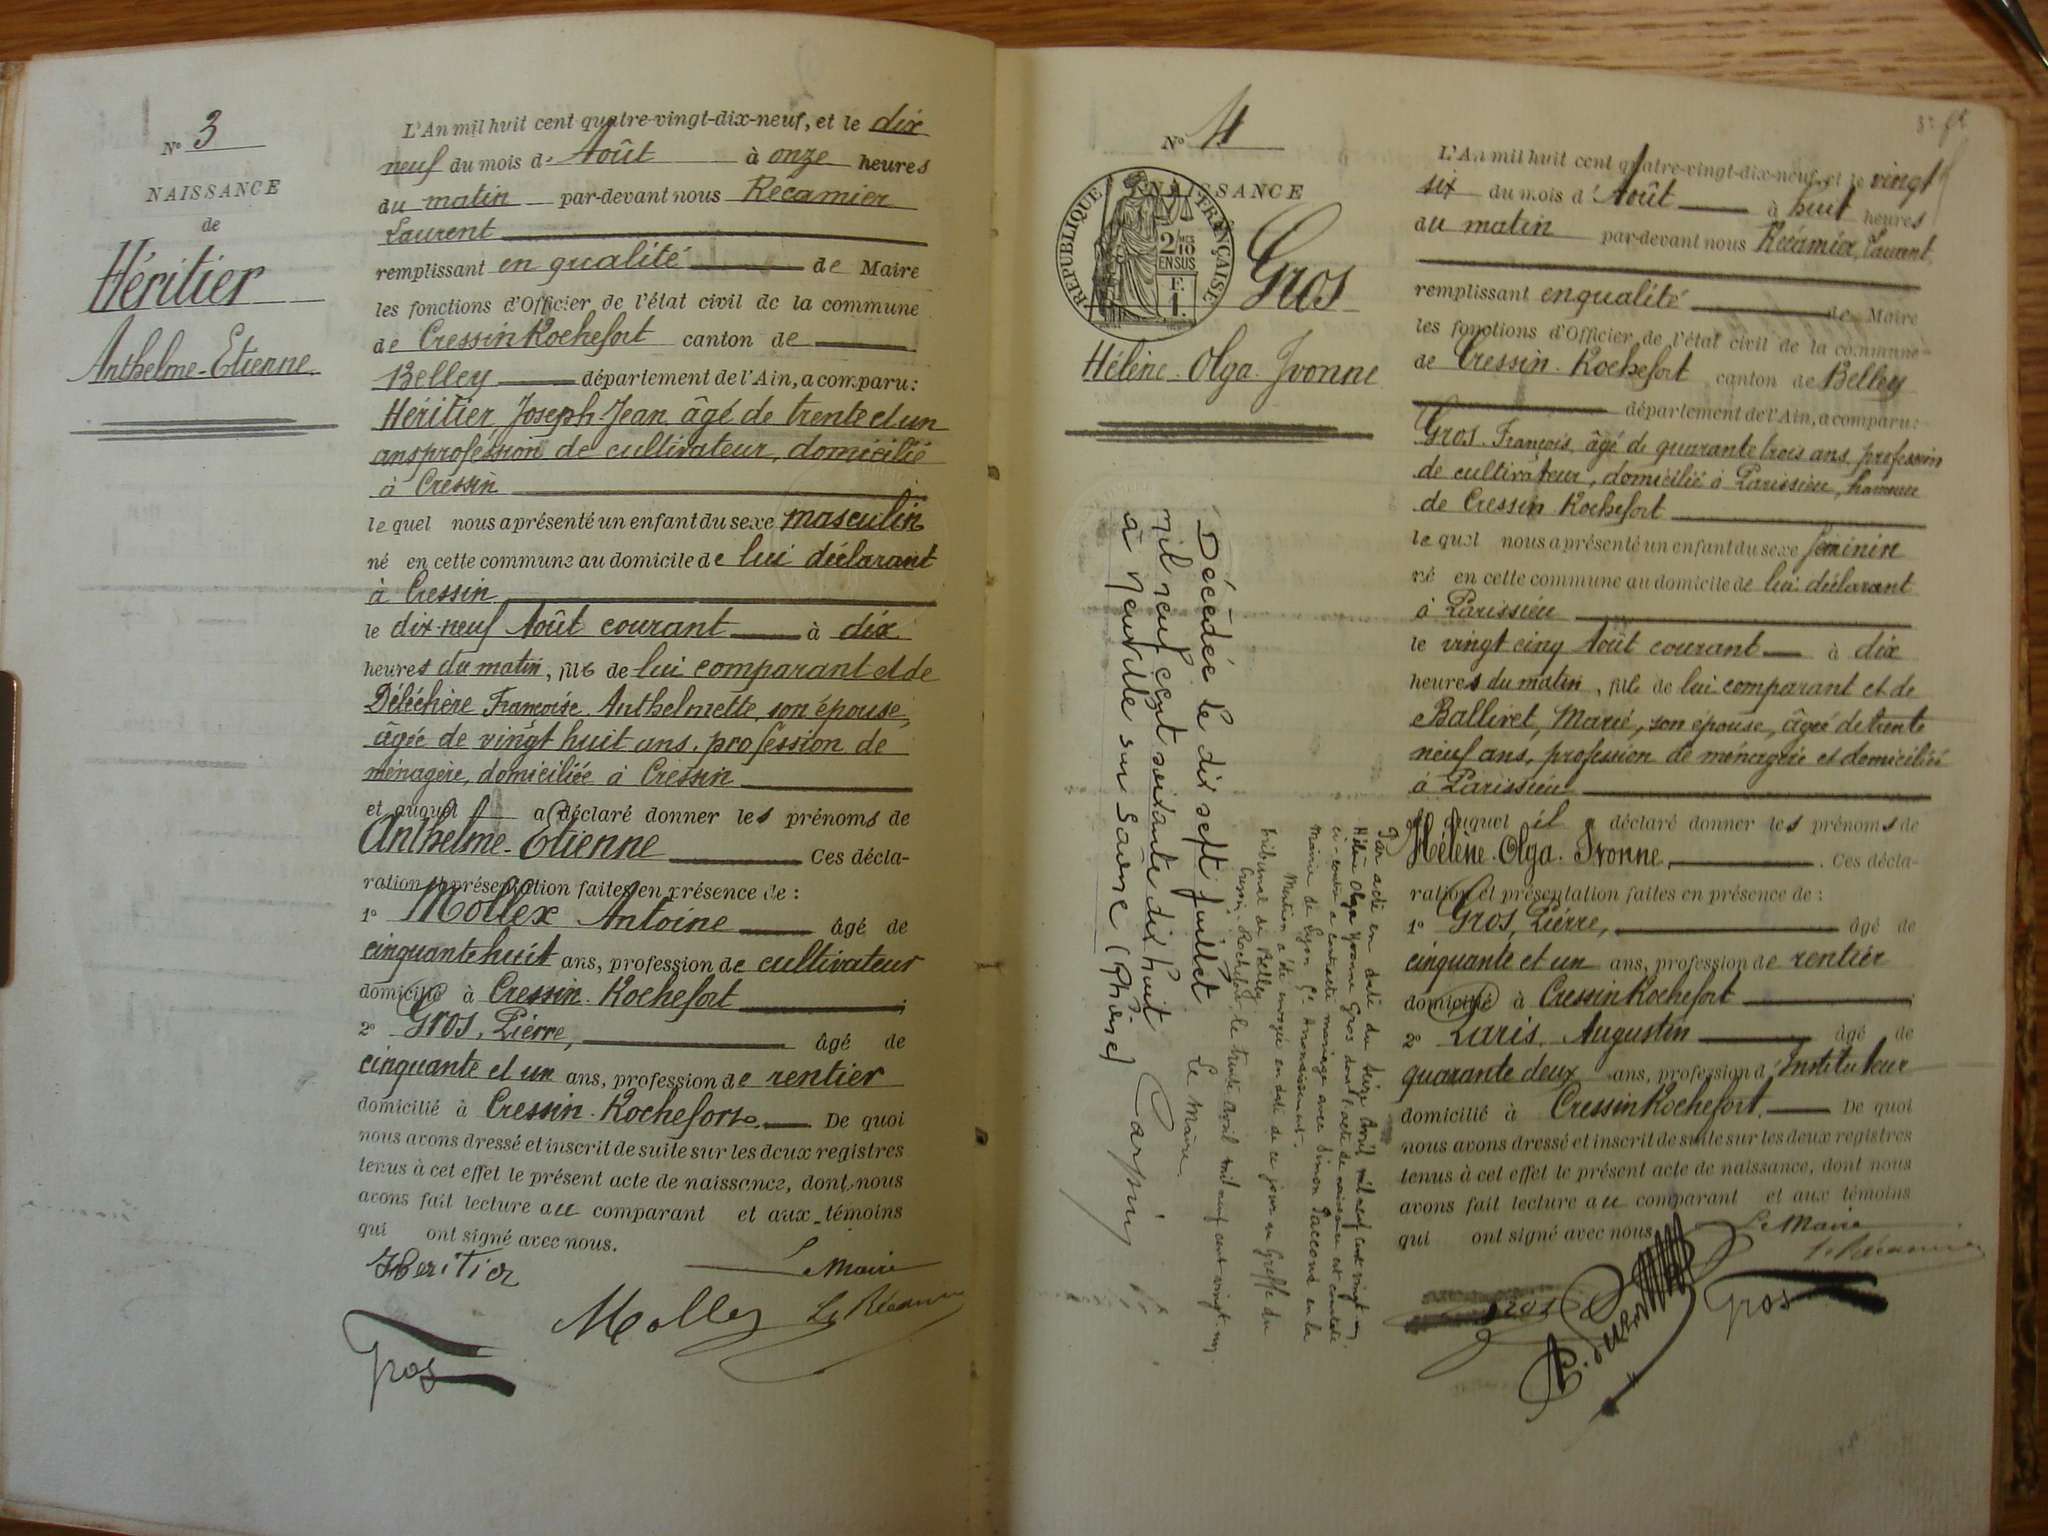 N° 3
NAISSANCE
de
Héritier
Anthelme-Etienne
L'An mil huit cent quatre-vingt-dix-neuf, et le dix
neuf du mois d' Août à onze heures
du matin par-devant nous Récamier
Laurent
remplissant en qualité de Maire
les fonctions d'Officier de l'état civil de la commune
de Cressin Rochefort canton de
Belley département de l'Ain, a comparu:
Héritier, Joseph-Jean, âgé de trente et un
ans profession de cultivateur, domicilié
à Cressin
le quel nous a présenté un enfant du sexe masculin
né en cette commune au domicile de lui déclarant
à Cressin
le dix-neuf Août courant à dix
heures du matin, fils de lui comparant et de
Françoise Anthelmette, son épouse,
âgée de vingt huit ans, profession de
ménagère, domiciliée à Cressin
et auquel il a déclaré donner les prénoms de
Anthelme-Etienne Ces décla-
ration et présentation faites en présence de :
1° Mollex Antoine âgé de
cinquante huit ans, profession de cultivateur
domicilié à Cressin-Rochefort ;
2° Gros, Pierre, âgé de
cinquante et un ans, profession de rentier
domicilié à Cressin-Rochefort. De quoi
nous avons dressé et inscrit de suite sur les deux registres
tenus à cet effet le présent acte de naissance, dont nous
avons fait lecture au comparant et aux témoins
qui ont signé avec nous.
Heritier
Le Maire
Mollex
L. Récamier
Gros
N° 4
NAISSANCE
REPUBLIQUE FRANÇAISE
2/10
EN SUS
F.
1.
Gros
Hélène-Olga-Yvonne
Décédée le dix sept juillet
mil neuf cent soixante dix huit
à Neuville sur Saône (Rhône)
Par acte en date du seize Avril mil neuf cent vingt-un
Hélène Olga Yvonne Gros dont l'acte de naissance est constaté
ci-contre a contracté mariage avec Simon Paccoud en la
Mairie de Lyon 5e Arrondissement.
Mention a été envoyée en date de ce jour au Greffe du
tribunal de Belley
Cressin-Rochefort, le trente Avril mil neuf cent vingt-un.
Le Maire
L'An mil huit cent quatre-vingt-dix-neuf, et le vingt
six du mois d' Août à huit heures
du matin par-devant nous Récamier, Laurent
remplissant en qualité de Maire
les fonctions d'Officier de l'état civil de la commune
de Cressin-Rochefort canton de Belley
département de l'Ain, a comparu:
Gros, François, âgé de quarante trois ans, profession
de cultivateur, domicilié à Parissieu, hameau
de Cressin-Rochefort
le quel nous a présenté un enfant du sexe féminin
né en cette commune au domicile de lui déclarant
à Parissieu
le vingt cinq Août courant à dix
heures du matin, fille de lui comparant et de
Ballivet, Marie, son épouse, âgée de trente
neuf ans, profession de ménagère et domiciliée
à Parissieu
et auquel il a déclaré donner les prénoms de
Hélène-Olga-Yvonne, Ces décla-
ration et présentation faites en présence de :
1° Gros, Pierre, âgé de
cinquante et un ans, profession de rentier
domicilié à Cressin Rochefort ;
2° Paris, Augustin âgé de
quarante deux ans, profession d' Instituteur
domicilié à Cressin Rochefort. De quoi
nous avons dressé et inscrit de suite sur les deux registres
tenus à cet effet le présent acte de naissance, dont nous
avons fait lecture au comparant et aux témoins
qui ont signé avec nous
Le Maire
L. Récamier
Gros
Gros